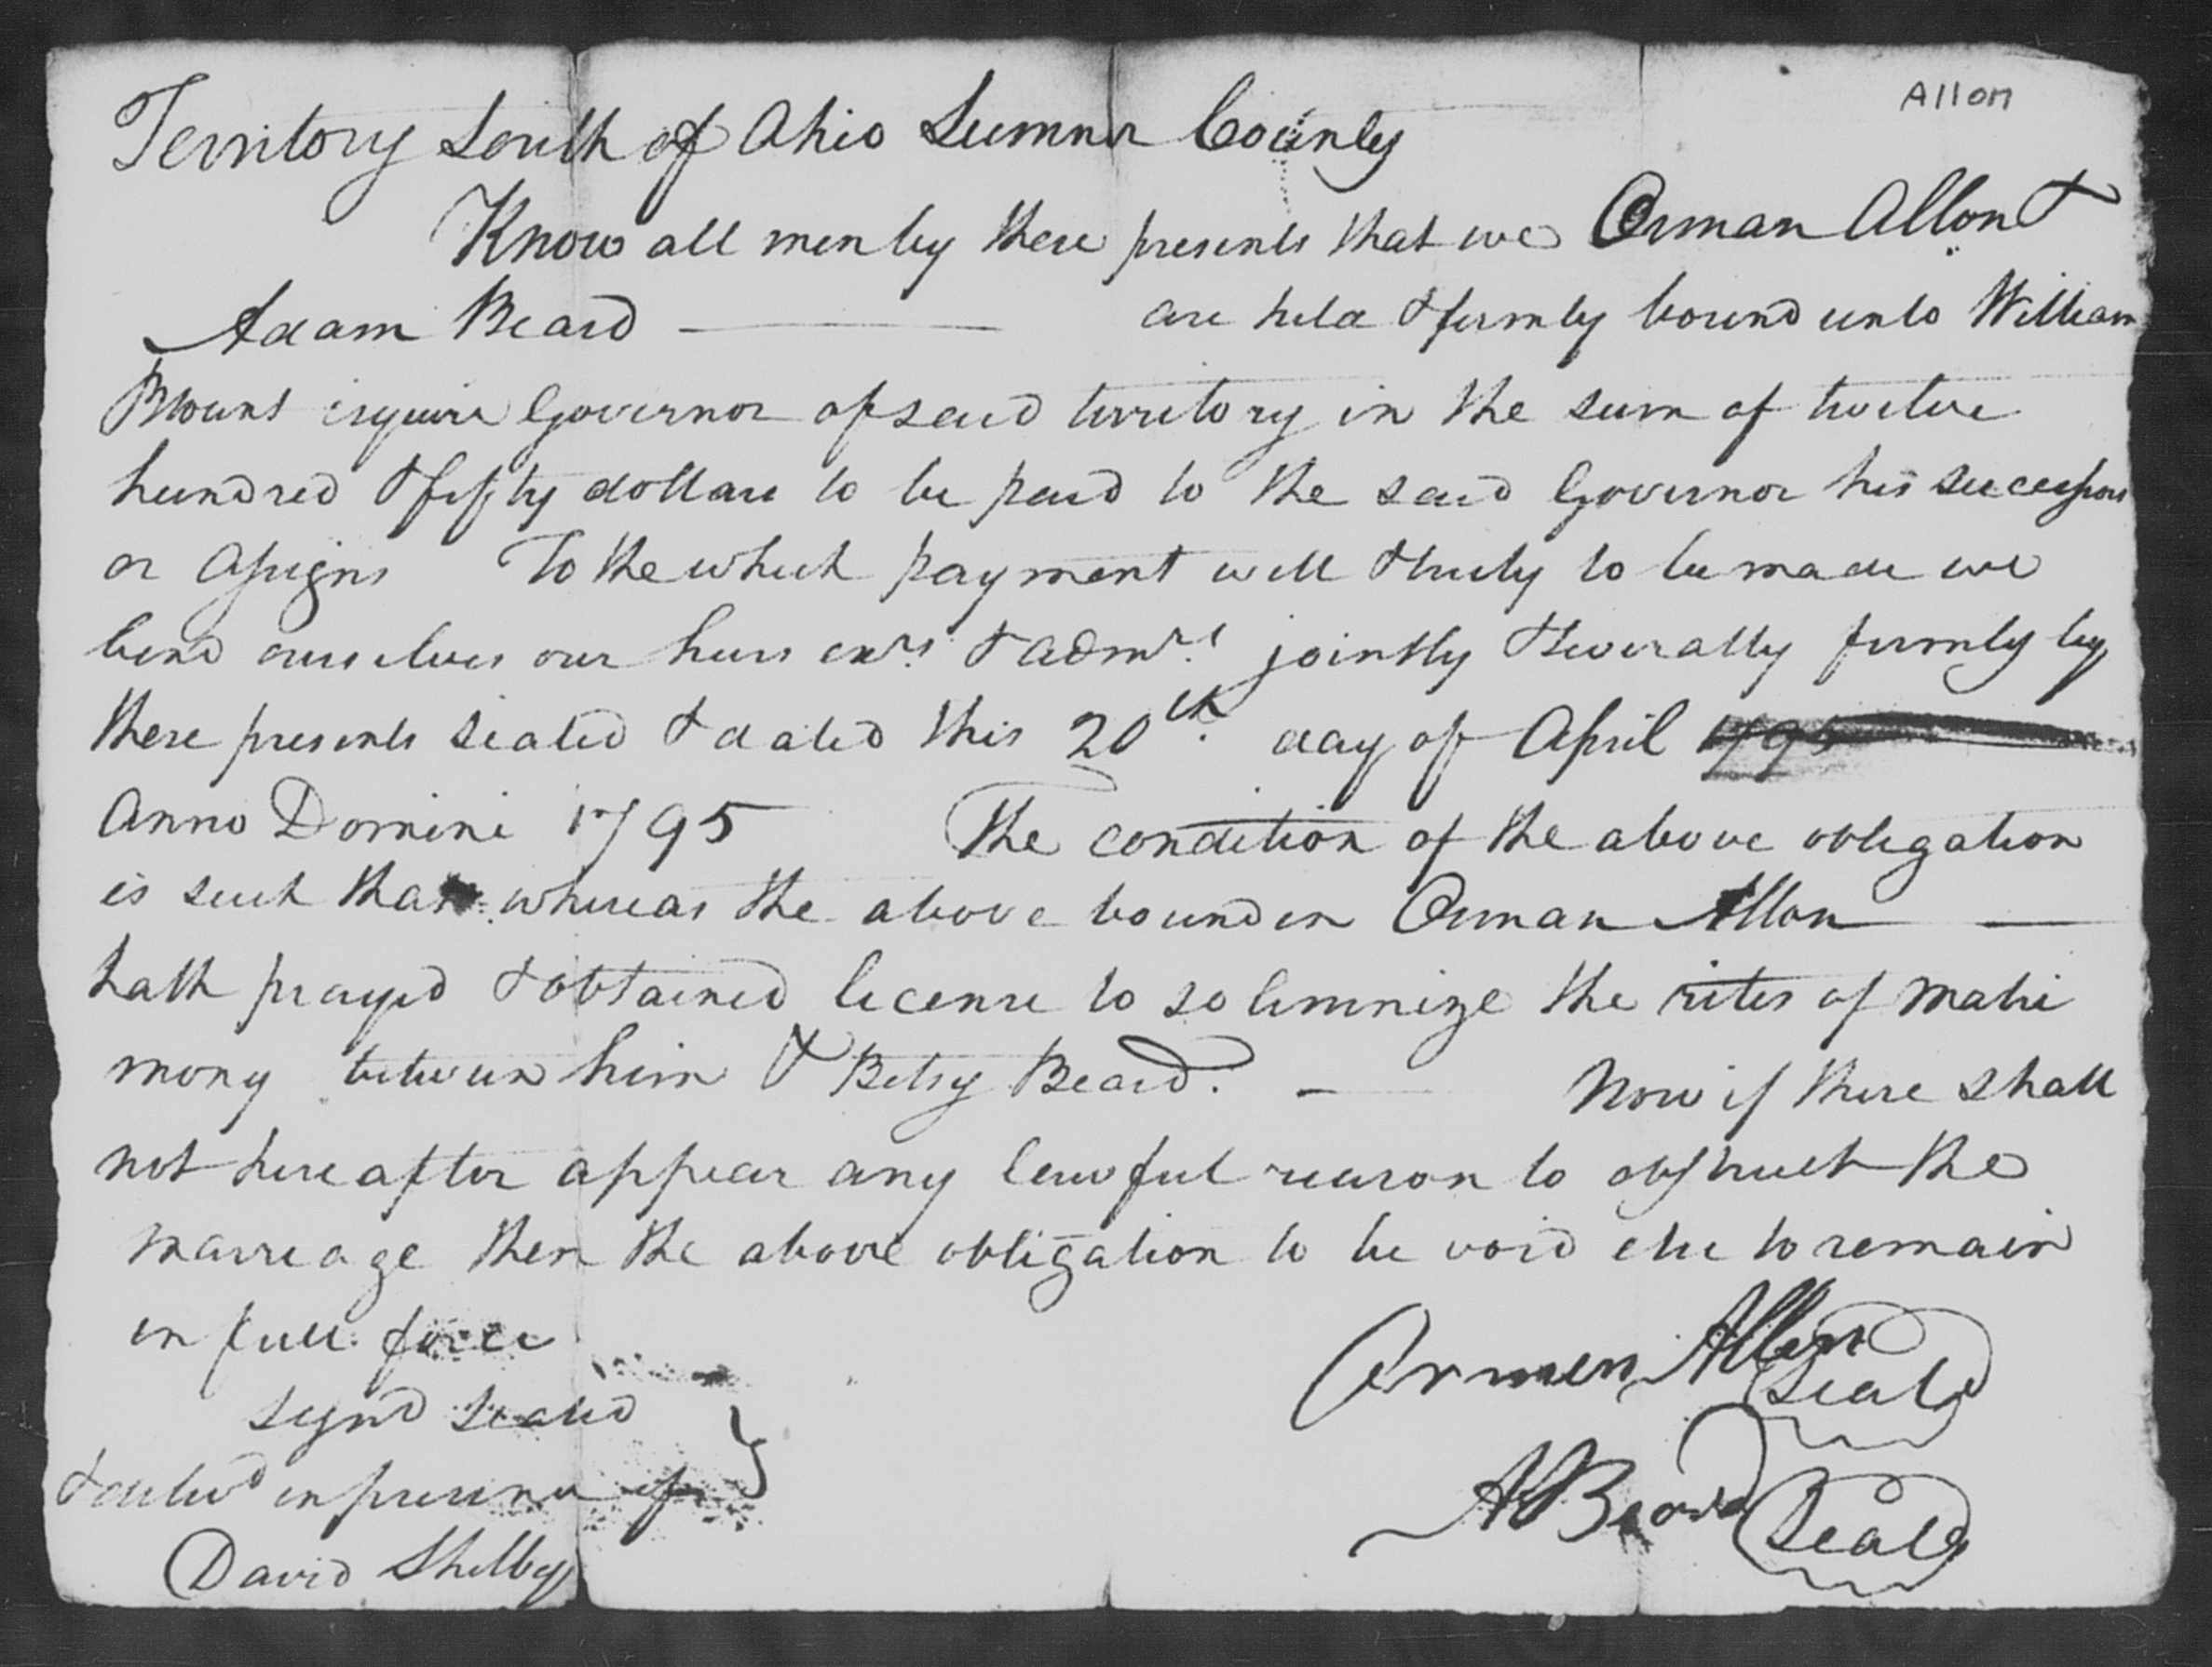 Allon
Territory South of Ohio Sumner County
Know all men by these presents that we Orman Allon &
Adam Beard are held & firmly bound unto William
Blount esquire Governor of said territory in the sum of twelve
hundred & fifty dollars to be paid to the said Governor his successors
or assigns To the which payment well & truly to be made we
bind ourselves our heirs exrs. & admrs. jointly & severally firmly by
these presents sealed & dated this 20th. day of April 1795
Anno Domini 1795 The condition of the above obligation
is such that whereas the above bounden Orman Allon
hath prayed & obtained license to solemnize the rites of matri
mony between him & Betsy Beard. Now if there shall
not hereafter appear any lawful reason to obstruct the
marriage then the above obligation to be void else to remain
in full force
Ormen Allen Seal
signd sealed
& deliv'd in presence of
A Beard Seal
David Shelby